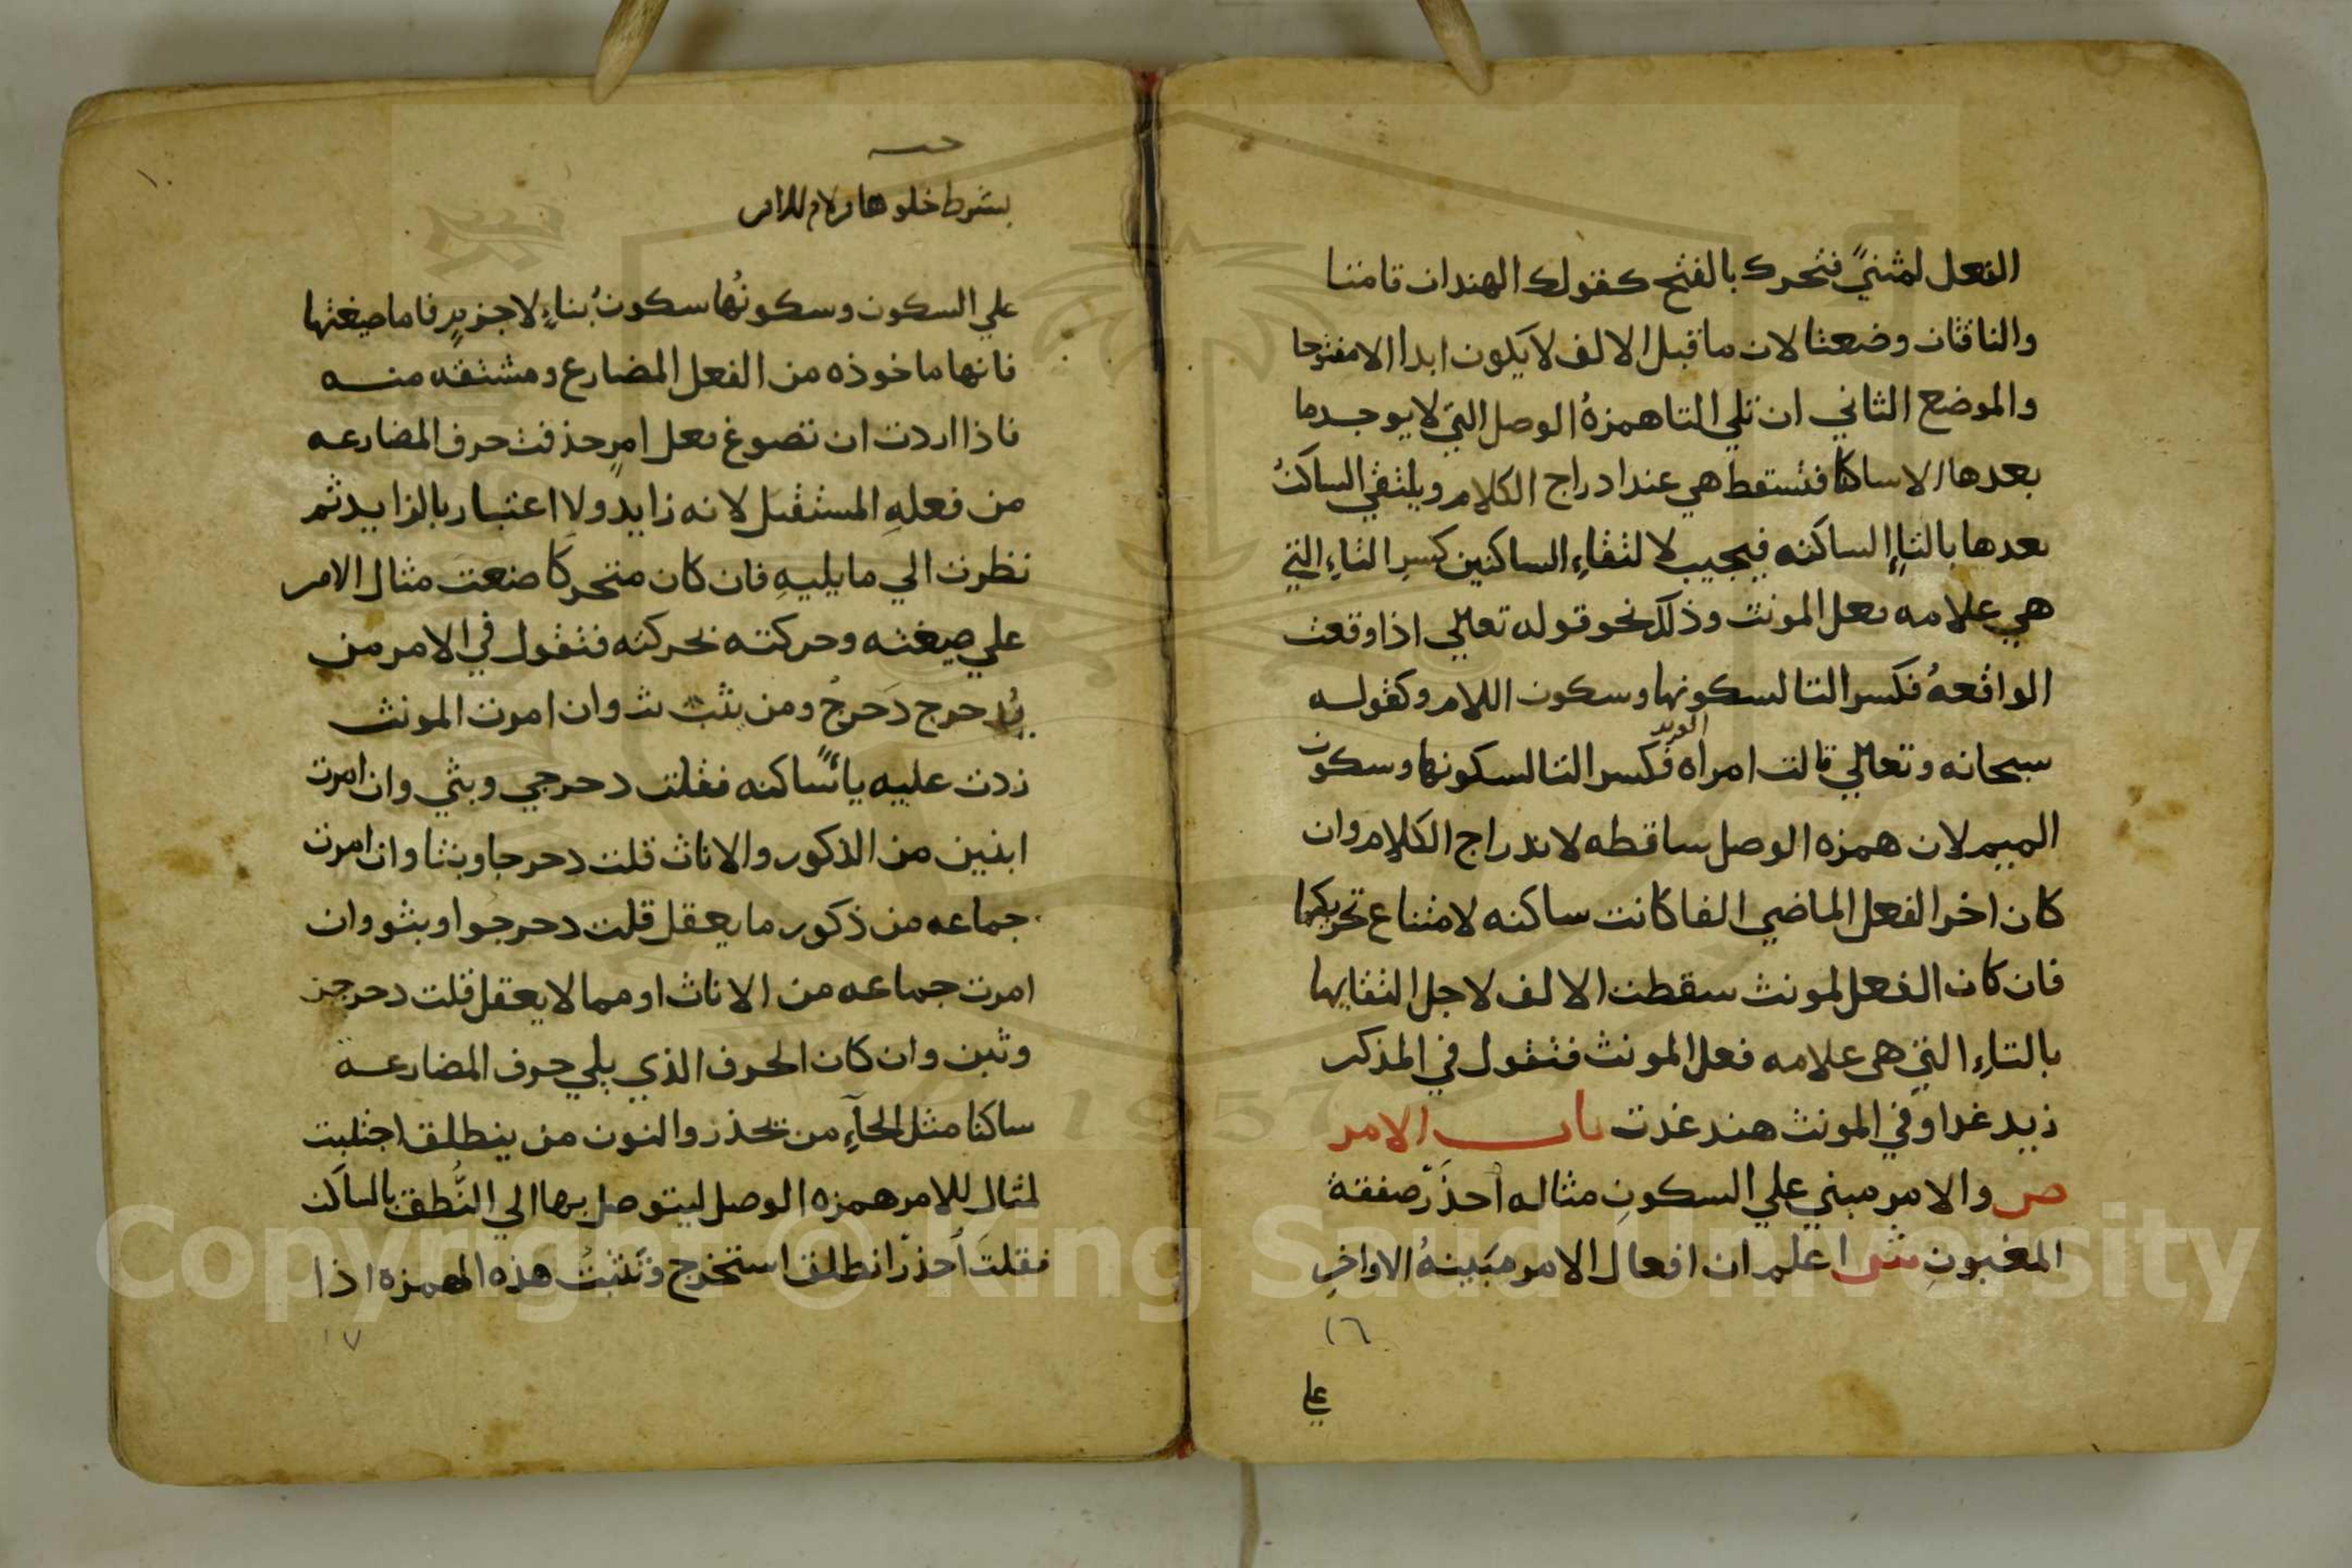 الفعل لمثنيً فتحرك بالفتح كقولك الهندان قامتا
والناقتان وضعتا لان ماقبل الالف لايكون ابدا الا مفتوحا
والموضع الثاني ان تلي التا همزةُ الوصل التي لا يوجد ما
بعدها الا ساكنا فتسقط هي عند ادراج الكلام ويلتقي الساكنُ
بعدها بالتاءِ الساكنه فيجيب لالتقاءِ الساكنين كسرِ التاءِ التي
هي علامه فعل المونث وذلك نحو قوله تعالي اذا وقعت
الواقعهُ فكسر التا لسكونها وسكون اللام وكقوله
سبحانه وتعالي قالت امراه العزيز فكسر التا لسكونها وسكون
الميم لان همزه الوصل ساقطه لاندراج الكلام وان
كان اخر الفعل الماضي الفا كانت ساكنه لامتناع تحريكها
فان كان الفعل لمونث سقطت الالف لاجل التقايها
بالتاءِ التي هي علامه فعل المونث فتقول في المذكر
زيد غدا وفي المونث هند غدت باب الامر
ص والامر مبني علي السكونِ مثاله احذَر صفقة
المغبونِ ش اعلم ان افعال الامر مبَينةُ الاواخرِ
١٦
علي
١٠
بشرط خلوها
علي السكون وسكونُها سكونُ بناءٍ لا جزمٍ فاما صيغتها
فانها ماخوذه من الفعل المضارع ومشتقه منه
فاذا اردت ان تصوغ فعل امرٍ حذفت حرف المضارعه
من فعلهِ المستقبل لانه زايد ولا اعتبار بالزايد ثم
نظرت الي ما يليهِ فان كان متحركًا صنعت مثال الامر
علي صيغته وحركته بحركته فتقول في الامر من
يُدحرج دَحرجْ ومن يثب ثب وان امرت المونث
زدت عليه ياءً ساكنه فقلت دحرجي وبثي وان امرت
اثنين من الذكور والاناث قلت دحرجا وبثا وان امرت
جماعه من ذكور ما يعقل قلت دحرجوا وبثو وان
امرت جماعه من الاناث او مما لا يعقل قلت دحرجن
وثبن وان كان الحرف الذي يلي حرف المضارعة
ساكنا مثل الحآءِ من تحذر والنون من ينطلق اجتلبت
لمثال للامر همزه الوصل ليتوصل بها الي النُّطق بالساكن
فقلتَ احذرْ انطلق استخرج وتَثبتُ هذه الهمزه اذا
١٧